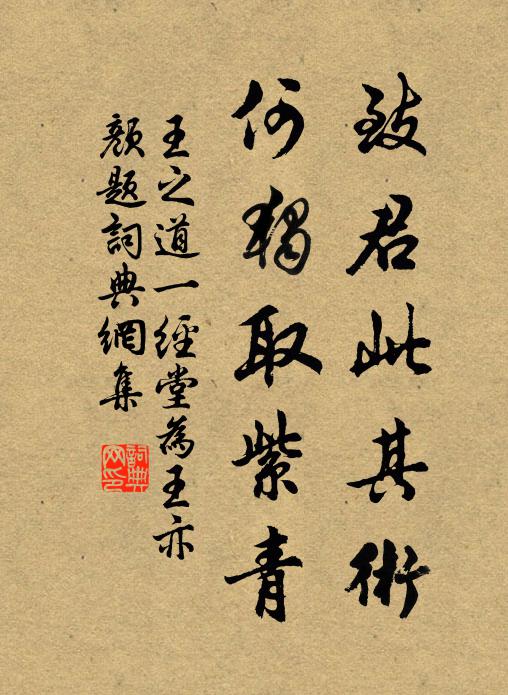 致君此其術
何獨取紫青
王之道一經堂為王亦
顏題詞典網集
詞典網印